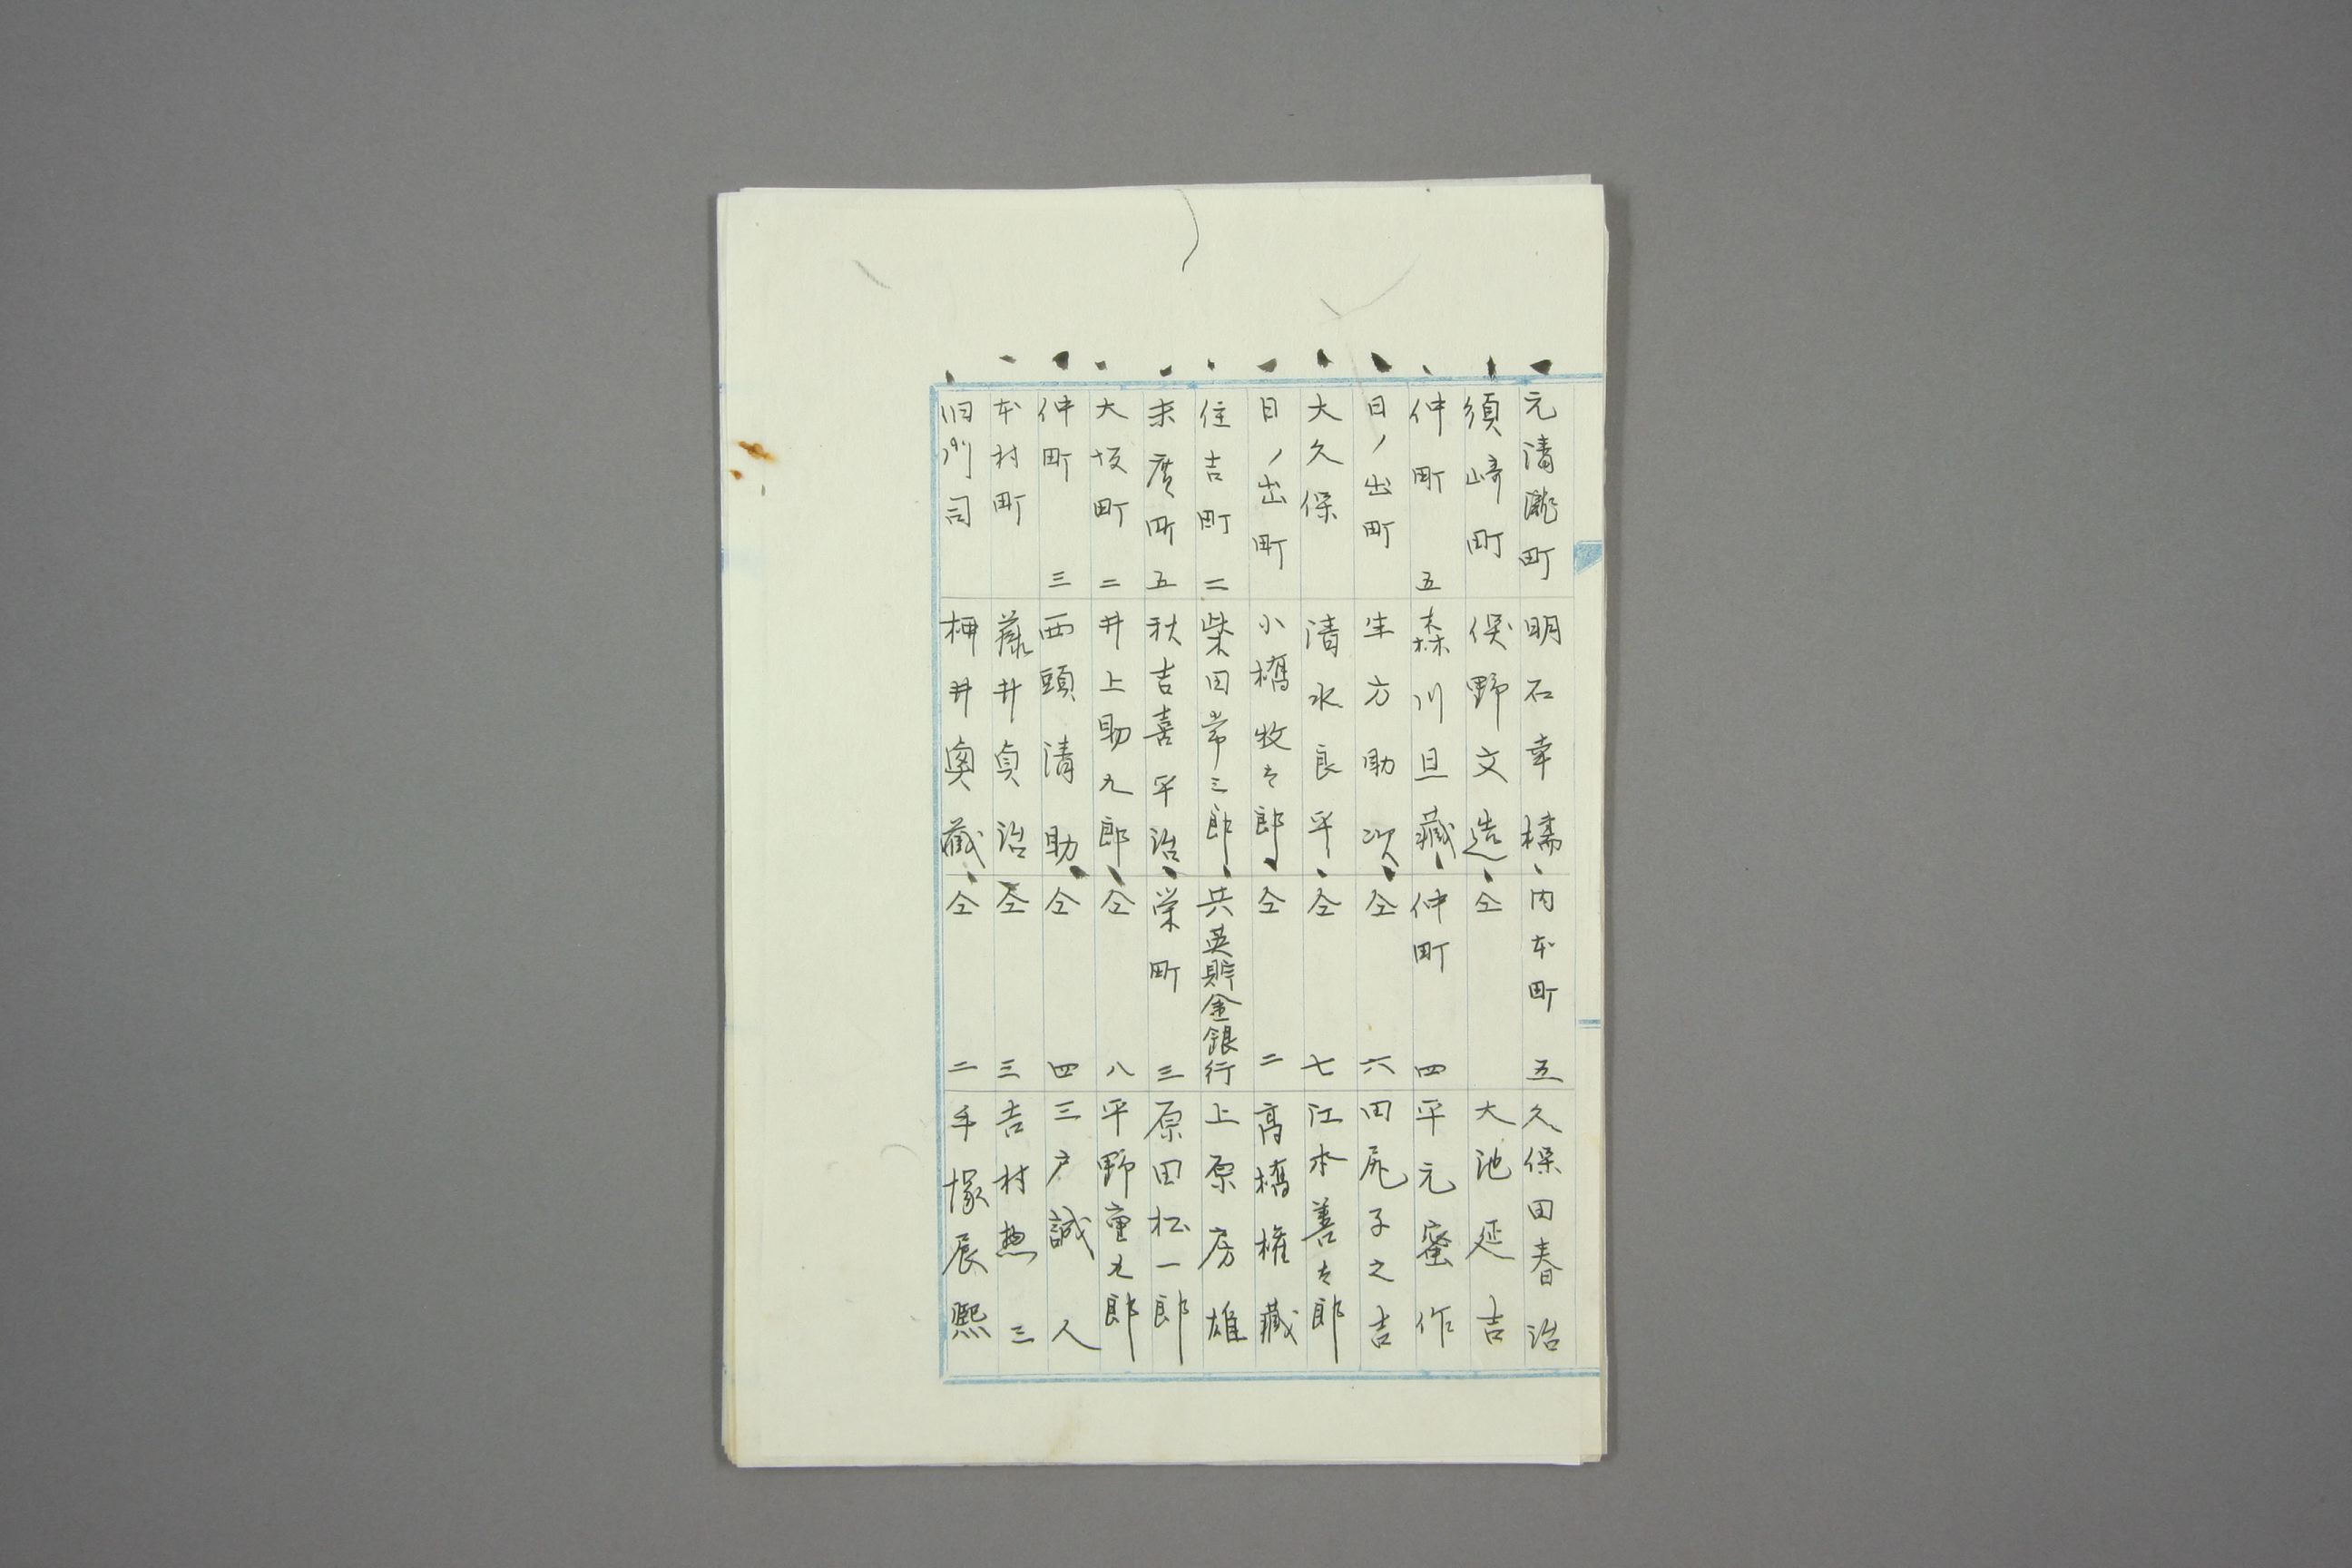 元清瀧町 明石幸橘
須崎町 俣野文造
仲町 五 森川旦藏
日ノ出町 生方助次
大久保 清水良平
日ノ出町 小橋牧太郎
住吉町 二 柴田常三郎
末廣町 五 秋吉喜平治
大坂町 二 井上助九郎
仲町 三 西頭清助
本村町 藤井貞治
旧門司 柙井奥藏
内本町 五 久保田春治
仝 大池延吉
仲町 四 平元蜜作
仝 六 田尻子之吉
仝 七 江本善太郎
仝 二 高橋権藏
共英貯金銀行 上原房雄
栄町 三 原田松一郎
仝 八 平野重九郎
仝 四 三戸誠人
仝 三 吉村惣三
仝 二 手塚辰熙